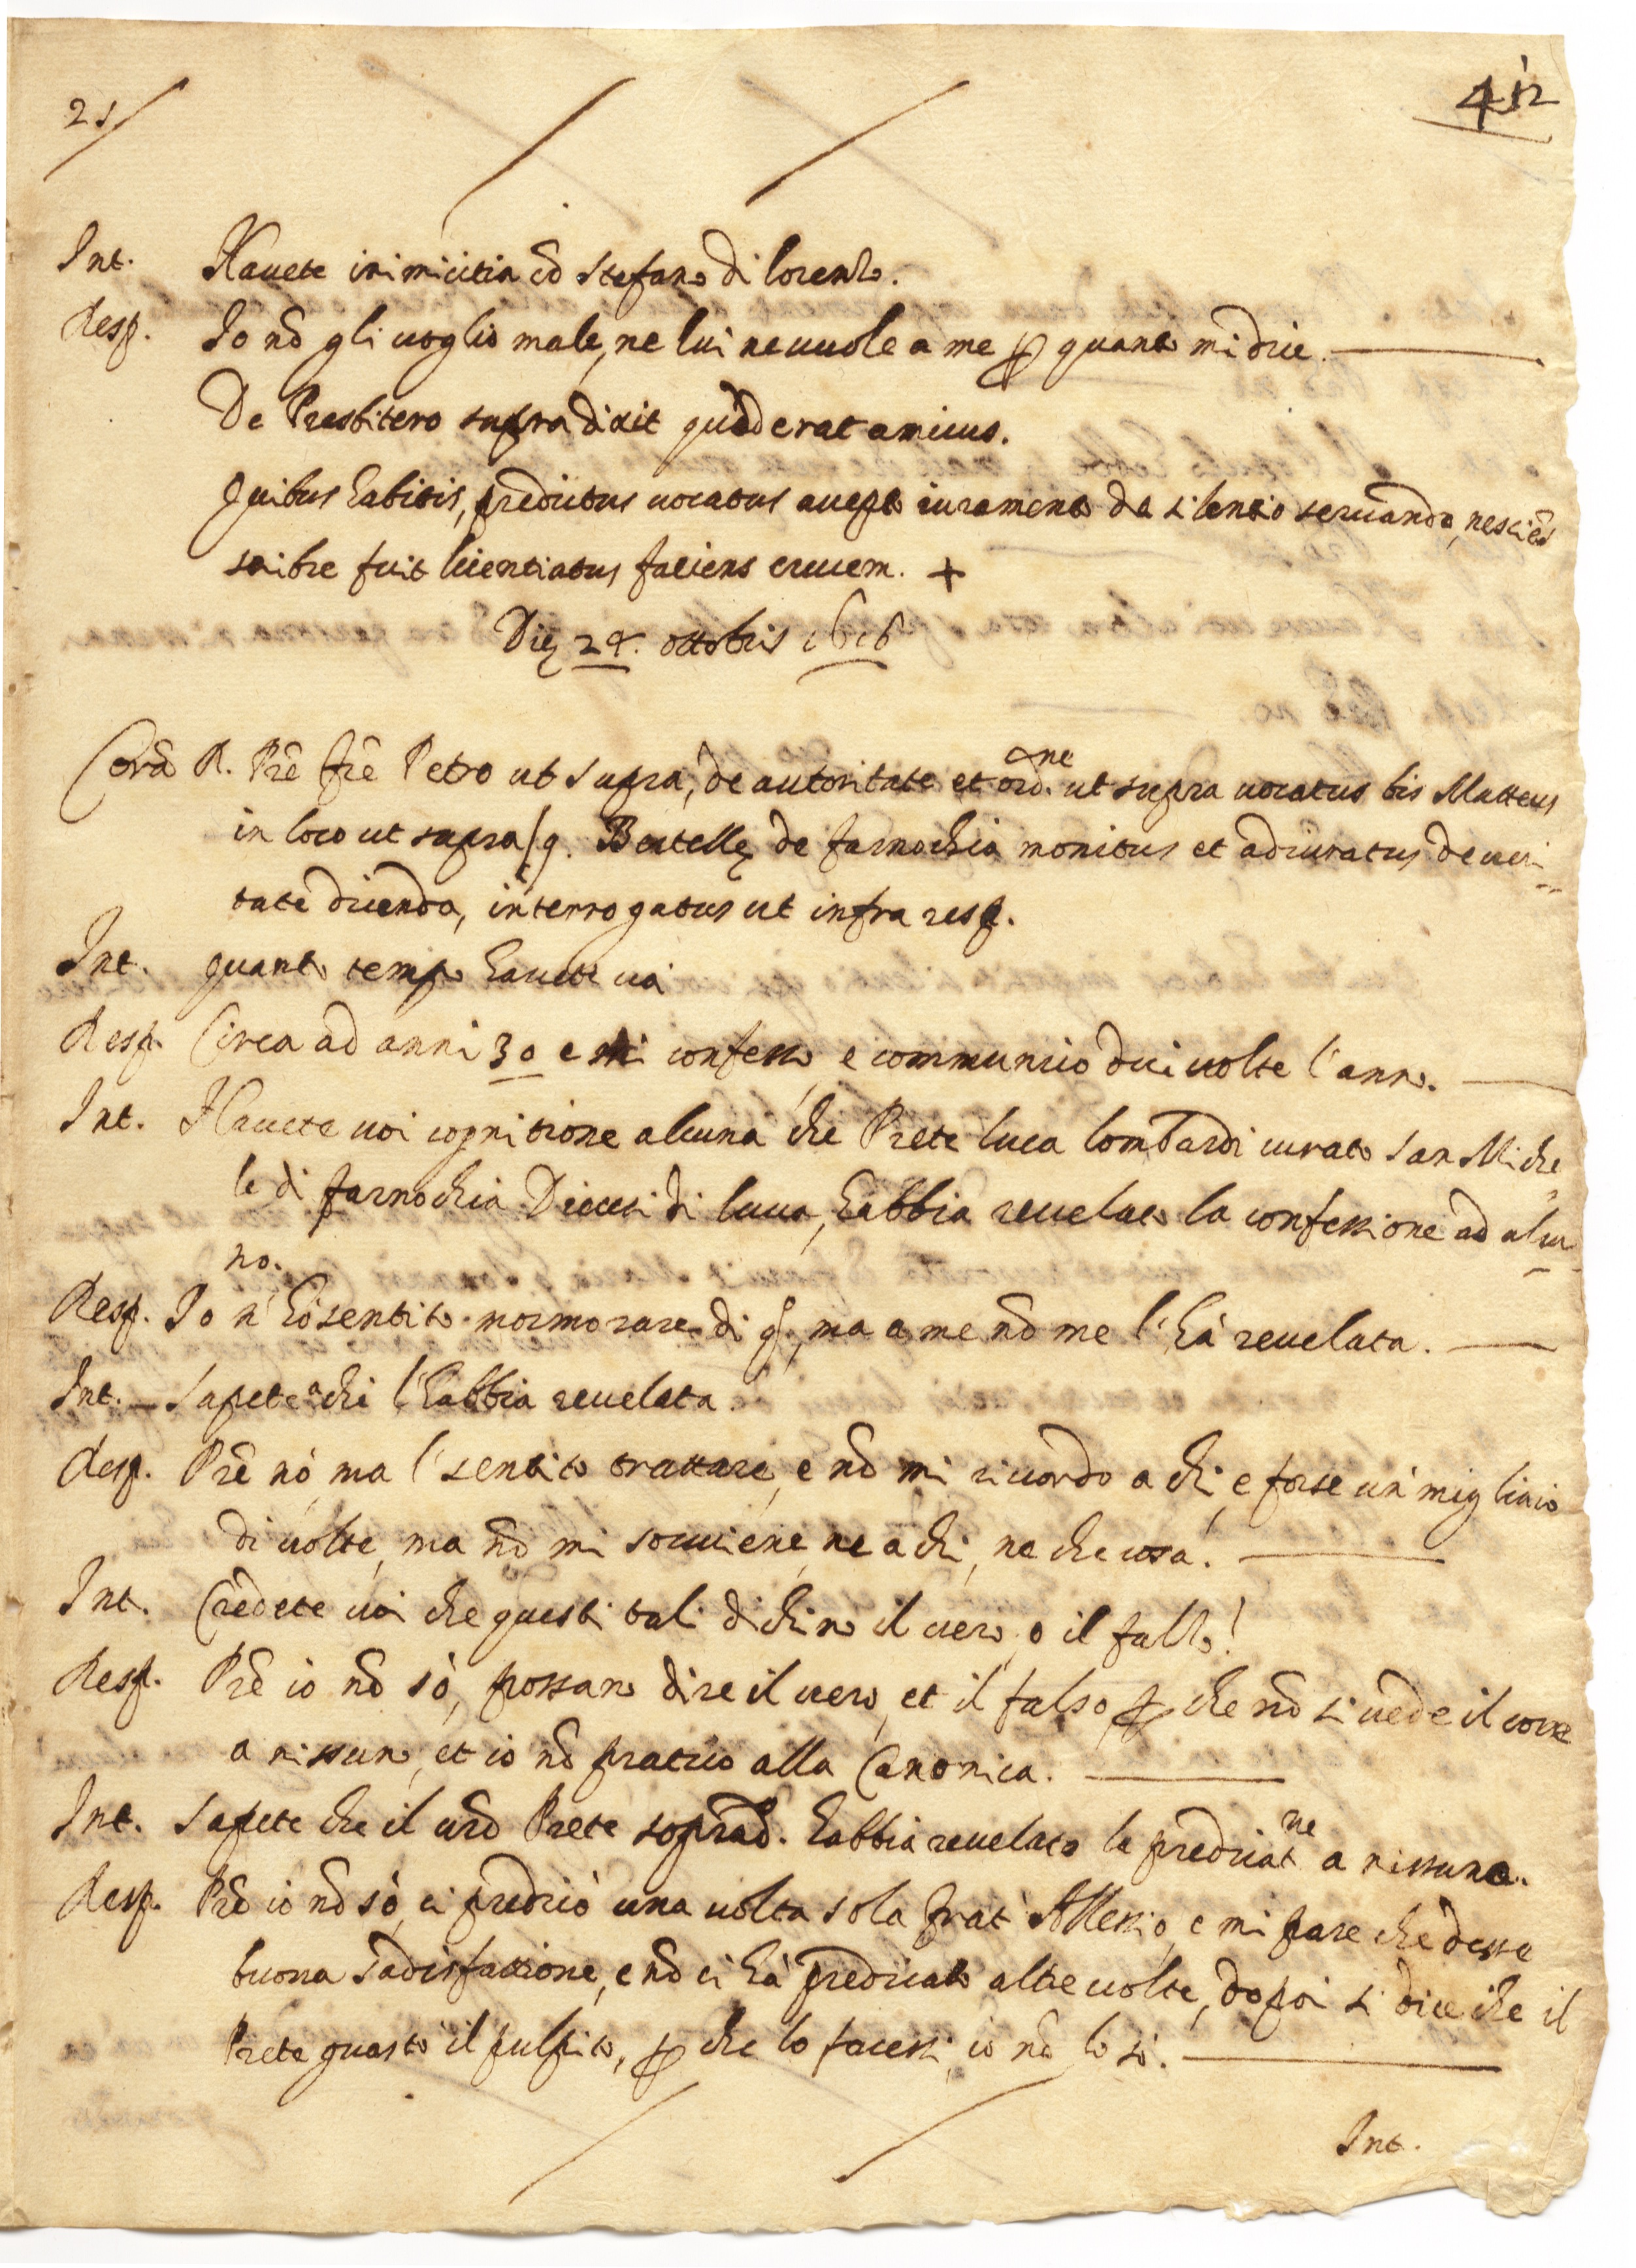 21
412
Int. Havete inimicitia cō Stefano di lorenzo.
Resp. Io nō gli voglio male, ne lui ne vuole a me ꝑ quanto mi dice.
De Presbitero supra dixit quòd erat amicus.
Quibus habitis, predictus vocatus accepto iuramento de silentio servando, nesciēs
scribre fuit licentiatus faciens crucem. +
Die 24. ottobris 1616
Corā R. Prē frē Petro ut supra, de autoritate et ord.ne ut supra vocatus bis Matteus
in loco ut supra/q. Bertellę de farnochia monitus et adiuratus de veri
tate dicenda, interrogatus ut infra resp.
Int. quanto tempo havete voi
Resp. Circa ad anni 30 e mi confesso, e communico dui volte l'anno.
Int. Havete voi cognitione alcuna che Prete luca lombardi curato San Miche
le di farnochia Diocesi di luca, habbia revelato la confessione ad alcu
no.
Resp. Io n' hò sentito mormorare di q., ma a me nō me l'hà revelata.
Int. Sapete à chi l'habbia revelata.
Resp. Prē nò, ma l' sentito trattare, e nō mi ricordo a chi, e forse un' migliaio
di volte, ma nō mi souviene, ne a chi, ne che cosa.
Int. Credete voi che questi tali dichino il vero, o il falso!
Resp. Prē io nō sò, possano dire il vero, et il falso ꝑ che nō si vede il core
a nissuno, et io nō pratico alla Canonica.
Int. Sapete che il vrō Prete soprad. habbia revelato le predicat.ne a nissuno.
Resp. Prē io nō sò, ci predicò una volta sola frat' Allessio, e mi pare che desse
buona sadisfattione, e nō ci hà predicato altre volte, dopoi si dice che il
Prete guastò il pulpito, ꝑ che lo facessi, io nō lo sò.
Int.